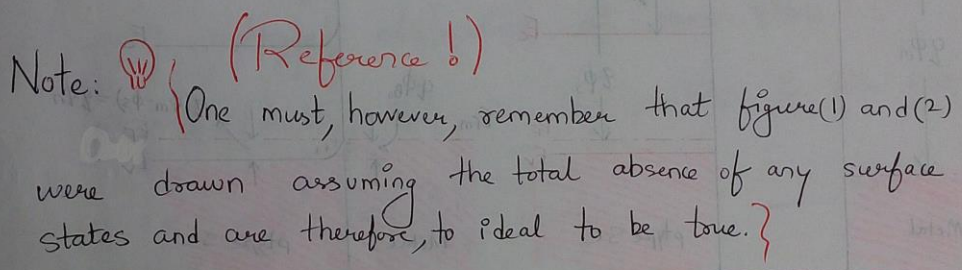 (Reference !)
Note: {One must, however, remember that figure(1) and (2)
were drawn assuming the total absence of any surface
states and are therefore, to ideal to be true.}